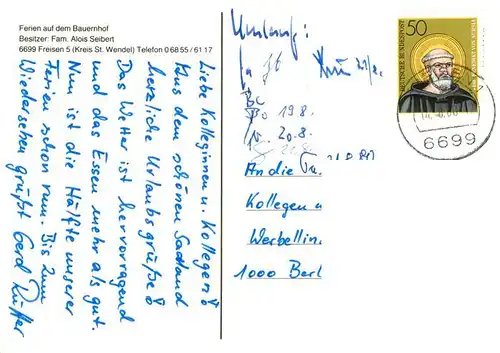 Ferien auf dem Bauernhof
Besitzer: Fam. Alois Seibert
6699 Freisen 5 (Kreis St. Wendel) Telefon 0 68 55 / 61 17
Liebe Kolleginnen u. Kollegen!
Aus dem schönen Saarland
herzliche Urlaubsgrüße!
Das Wetter ist hervorragend
und das Essen mehr als gut.
Nun ist die Hälfte unserer
Ferien schon rum. Bis zum
Wiedersehen grüßt Gerd
Umlauf:
19.8.
20.8.
An die
Kollegen u
Werbellin
1000 Berl
50
DEUTSCHE BUNDESPOST
6699